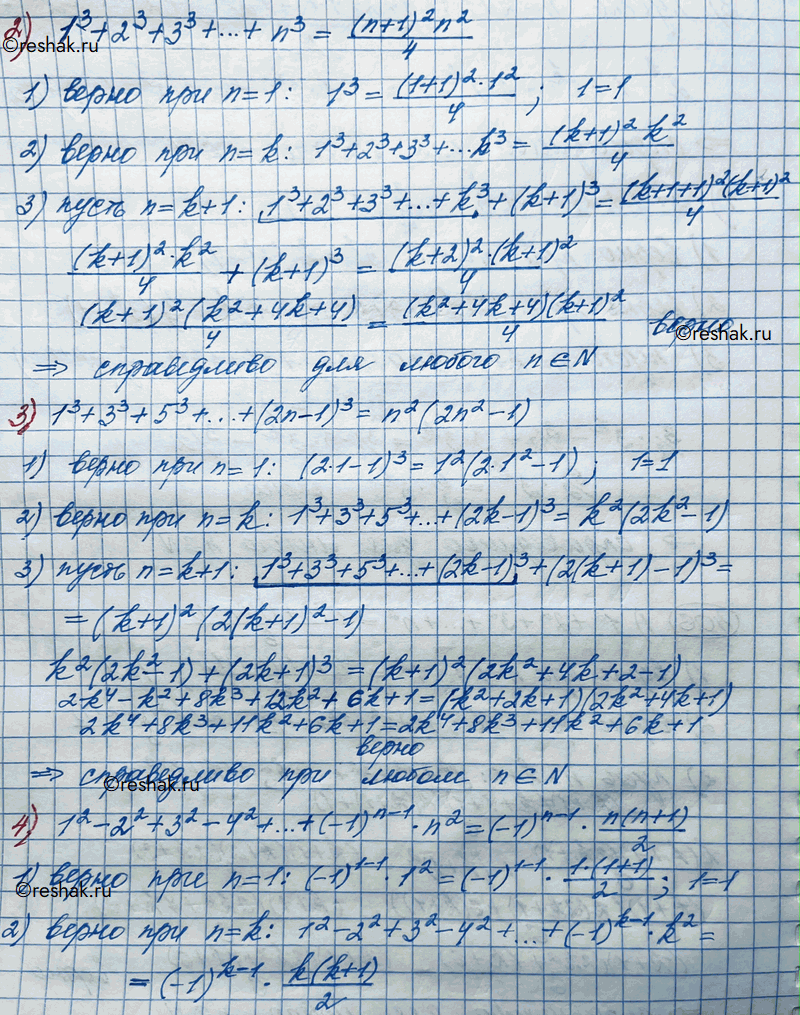 2) 1³+2³+3³+...+n³ = (n+1)²n²/4
©reshak.ru
1) верно при n=1: 1³ = (1+1)²·1²/4; 1=1
2) верно при n=k: 1³+2³+3³+...k³ = (k+1)²k²/4
3) пусть n=k+1: 1³+2³+3³+...+k³+(k+1)³ = (k+1+1)²(k+1)²/4
(k+1)²·k²/4 + (k+1)³ = (k+2)²·(k+1)²/4
(k+1)²(k²+4k+4)/4 = (k²+4k+4)(k+1)²/4 верно
©reshak.ru
=> справедливо для любого n∈N
3) 1³+3³+5³+...+(2n-1)³ = n²(2n²-1)
1) верно при n=1: (2·1-1)³ = 1²(2·1²-1); 1=1
2) верно при n=k: 1³+3³+5³+...+(2k-1)³ = k²(2k²-1)
3) пусть n=k+1: 1³+3³+5³+...+(2k-1)³+(2(k+1)-1)³ =
= (k+1)²(2(k+1)²-1)
k²(2k²-1)+(2k+1)³ = (k+1)²(2k²+4k+2-1)
©reshak.ru
2k⁴-k²+8k³+12k²+6k+1 = (k²+2k+1)(2k²+4k+1)
2k⁴+8k³+11k²+6k+1 = 2k⁴+8k³+11k²+6k+1
верно
=> справедливо при любом n∈N
©reshak.ru
4) 1²-2²+3²-4²+...+(-1)ⁿ⁻¹·n² = (-1)ⁿ⁻¹·n(n+1)/2
1) верно при n=1: (-1)¹⁻¹·1² = (-1)¹⁻¹·1·(1+1)/2; 1=1
©reshak.ru
2) верно при n=k: 1²-2²+3²-4²+...+(-1)ᵏ⁻¹·k² =
= (-1)ᵏ⁻¹·k(k+1)/2